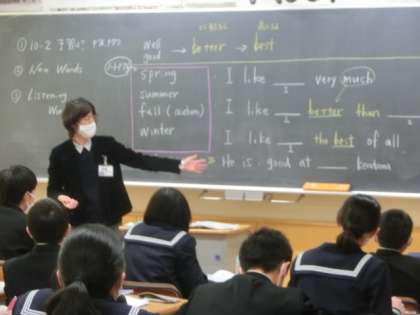 ① 10-2
② New Words
③ Listening
Well
good → better → best
Spring
summer
fall (autumn)
winter
I like ___ very much
I like ___ better than ___
I like ___ the best of all
He is good at ___ kendama